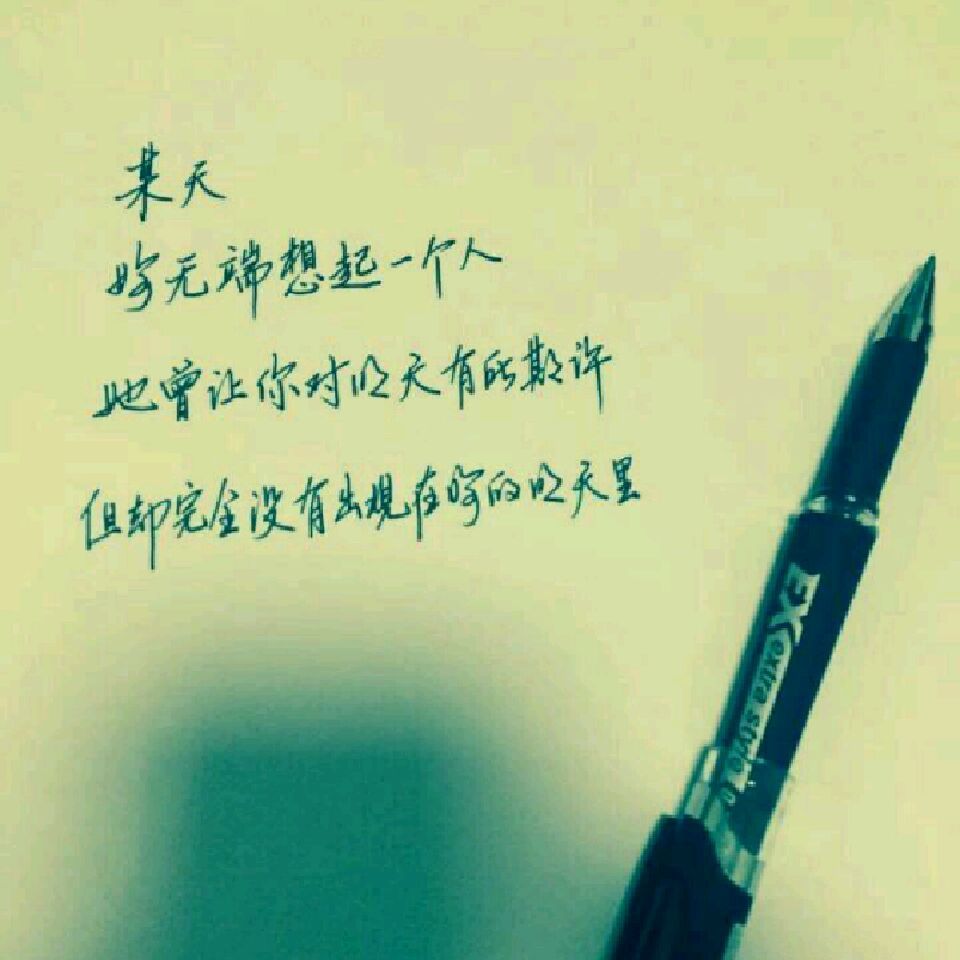 某天
你无端想起一个人
她曾让你对明天有所期许
但却完全没有出现在你的明天里
EX extra stylo 1.0